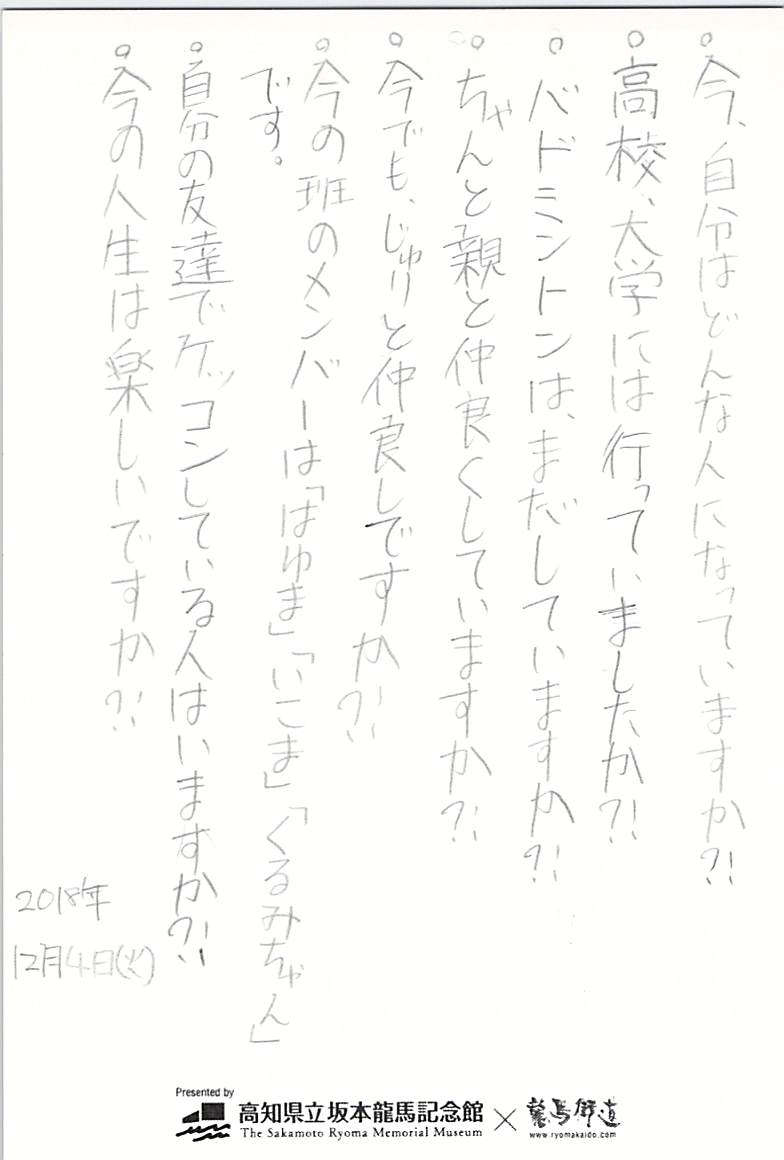 。今、自分はどんな人になっていますか?!
。高校、大学には行っていましたか?!
。バドミントンは、まだしていますか?!
。ちゃんと親と仲良くしていますか?!
。今でも、じゅりと仲良しですか?!
。今の班のメンバーは「はゆま」「いこま」「くるみちゃん」
です。
。自分の友達でケッコンしている人はいますか?!
。今の人生は楽しいですか?!
2018年
12月4日(火)
Presented by
高知県立坂本龍馬記念館
The Sakamoto Ryoma Memorial Museum
×
龍馬街道
www.ryomakaido.com